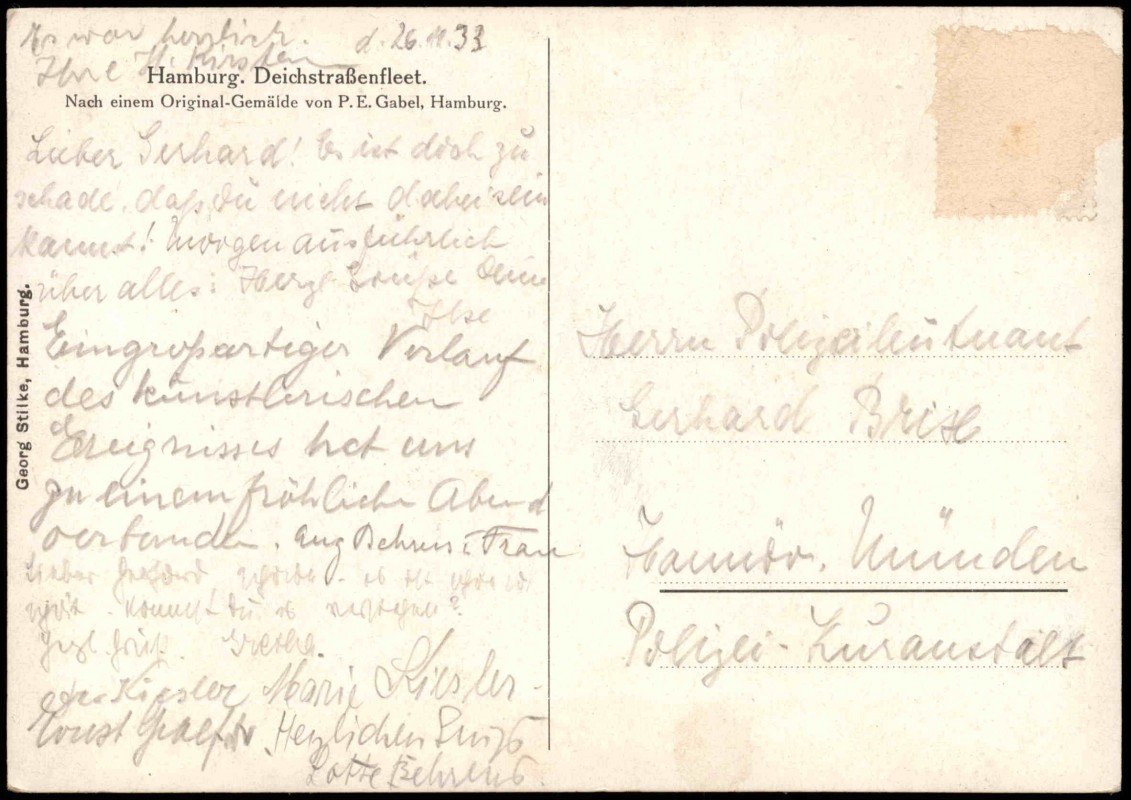 Es war herrlich.
d. 26.11.33
Ihre H. Kirsten
Hamburg. Deichstraßenfleet.
Nach einem Original-Gemälde von P. E. Gabel, Hamburg.
Lieber Gerhard! Es ist doch zu
schade, daß Du nicht dabei sein
kannst! Morgen ausführlich
über alles: Herzl. Grüße Deine
Ilse
Ein großartiger Verlauf
des künstlerischen
Ereignisses hat uns
zu einem fröhlichen Abend
verbunden. Aug Behrens u. Frau
Lieber Gerhard es ist
Kommst Du
Herzl. Gruß. Grethe.
Kiesler Marie Kiesler
Ernst Herzlichen Gruß
Lotte Behrens.
Georg Stilke, Hamburg.
Herrn Polizeileutnant
Gerhard Brix
Hannöv. Münden
Polizei-Kuranstalt